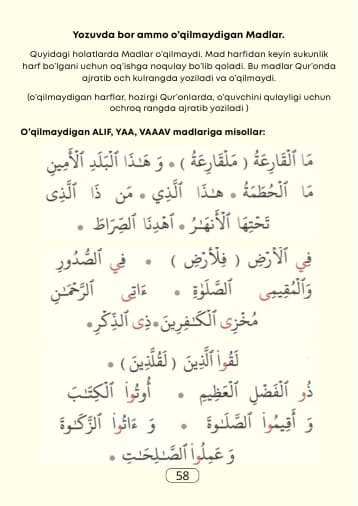 Yozuvda bor ammo o'qilmaydigan Madlar.
Quyidagi holatlarda Madlar o'qilmaydi. Mad harfidan keyin sukunlik
harf bo'lgani uchun oq'ishga noqulay bo'lib qoladi. Bu madlar Qur'onda
ajratib och kulrangda yoziladi va o'qilmaydi.
(o'qilmaydigan harflar, hozirgi Qur'onlarda, o'quvchini qulayligi uchun
ochroq rangda ajratib yoziladi )
O'qilmaydigan ALIF, YAA, VAAAV madlariga misollar:
مَا ٱلْقَارِعَةُ ( مَلْقَارِعَةُ ) * وَ هَـٰذَا ٱلْبَلَدِ ٱلْأَمِينِ
مَا ٱلْحُطَمَةُ * هـٰذَا ٱلَّذِي * مَن ذَا ٱلَّذِى
تَحْتِهَا ٱلْأَنْهَـٰرُ * ٱهْدِنَا ٱلصِّرَاطَ *
فِي ٱلْأَرْضِ ( فِلْأَرْضِ ) * فِي ٱلصُّدُورِ
وَٱلْمُقِيمِى ٱلصَّلَوٰةِ * ءَاتِى ٱلرَّحْمَـٰنِ
مُخْزِى ٱلْكَـٰفِرِينَ*ذِى ٱلذِّكْرِ*
لَقُوا۟ ٱلَّذِينَ ( لَقُلَّذِينَ ) *
ذُو ٱلْفَضْلِ ٱلْعَظِيمِ * أُوتُوا۟ ٱلْكِتَـٰبَ
وَ أَقِيمُوا۟ ٱلصَّلَوٰةَ * وَ ءَاتُوا۟ ٱلزَّكَوٰةَ
وَ عَمِلُوا۟ ٱلصَّـٰلِحَـٰتِ *
58